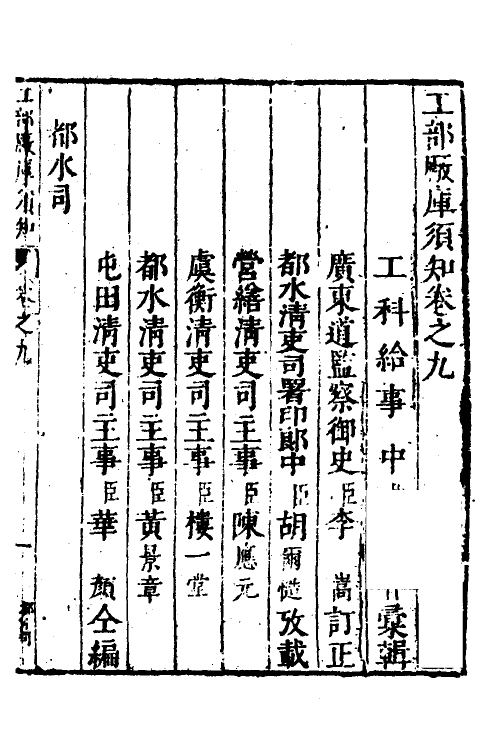 工部厰庫須知卷之九
工科給事中 彙輯
廣東道監察御史臣李嵩訂正
都水清吏司署印郎中臣胡爾慥攷載
營繕清吏司主事臣陳應元
虞衡清吏司主事臣樓一堂
都水清吏司主事臣黃景章
屯田清吏司主事臣華顏仝編
都水司
工部厰庫須知 卷之九 一